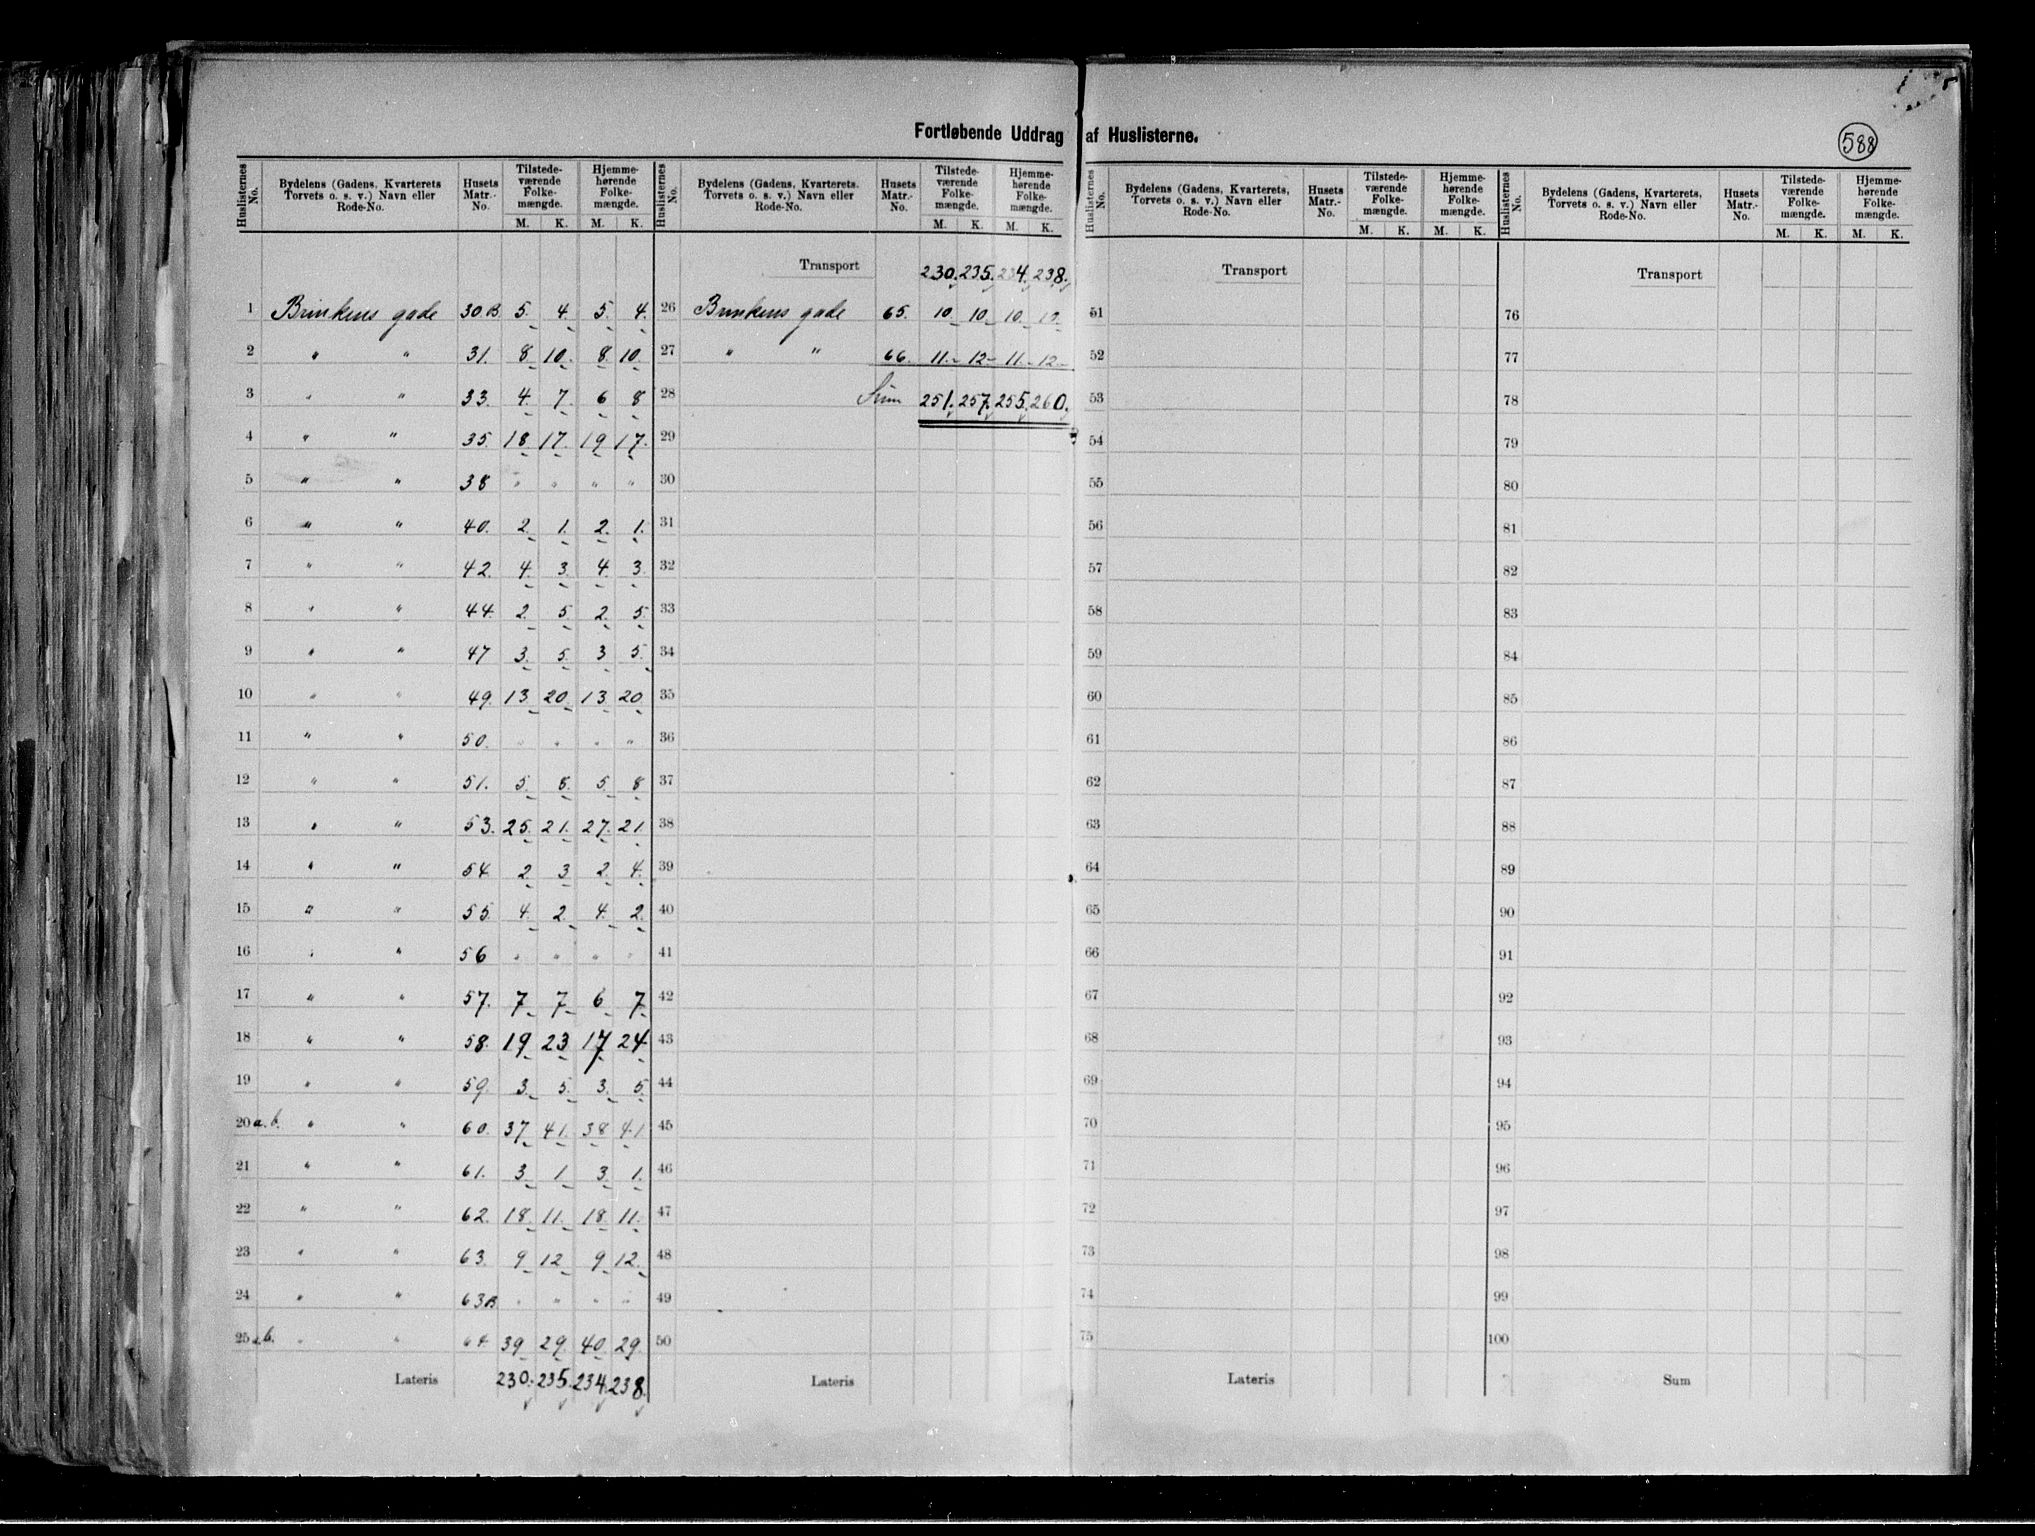 Fortløbende Uddrag af Huslisterne.
588
Huslisternes No. Bydelens (Gadens, Kvarterets Torvets o. s. v.) Navn eller Rode-No. Husets Matr.-No. Tilstedeværende Folkemængde. M. K. Hjemmehørende Folkemængde. M. K.
Huslisternes No. Bydelens (Gadens, Kvarterets. Torvets o. s. v.) Navn eller Rode-No. Husets Matr.-No. Tilstedeværende Folkemængde. M. K. Hjemmehørende Folkemængde. M. K.
Huslisternes No. Bydelens (Gadens, Kvarterets, Torvets o. s. v.) Navn eller Rode-No. Husets Matr.-No. Tilstedeværende Folkemængde. M. K. Hjemmehørende Folkemængde. M. K.
Huslisternes No. Bydelens (Gadens, Kvarterets, Torvets o. s. v.) Navn eller Rode-No. Husets Matr.-No. Tilstedeværende Folkemængde. M. K. Hjemmehørende Folkemængde. M. K.
Transport 230. 235. 234. 238. Transport Transport
1 Brinkens gade 30.B. 5. 4. 5. 4. 26 Brinkens gade 65. 10 10. 10. 10. 51 76
2 " " 31. 8. 10. 8. 10. 27 " " 66. 11. 12 11. 12 52 77
3 " " 33. 4. 7. 6 8 28 Sum 251. 257. 255. 260. 53 78
4 " " 35. 18. 17. 19 17. 29 54 79
5 " " 38 " " " " 30 55 80
6 " " 40. 2. 1. 2. 1. 31 56 81
7 " " 42. 4. 3. 4. 3. 32 57 82
8 " " 44. 2. 5. 2. 5. 33 58 83
9 " " 47 3. 5. 3 5. 34 59 84
10 " " 49. 13 20. 13. 20. 35 60 85
11 " " 50. " " " " 36 61 86
12 " " 51. 5. 8. 5. 8 37 62 87
13 " " 53. 25. 21. 27. 21. 38 63 88
14 " " 54 2 3 2. 4. 39 64 89
15 " " 55. 4. 2. 4. 2. 40 65 90
16 " " 56 " " " " 41 66 91
17 " " 57. 7 7 6 7. 42 67 92
18 " " 58. 19 23 17 24 43 68 93
19 " " 59. 3. 5. 3. 5. 44 69 94
20 a. b. " " 60. 37. 41. 38 41. 45 70 95
21 " " 61. 3. 1. 3. 1. 46 71 96
22 " " 62. 18. 11. 18. 11. 47 72 97
23 " " 63. 9 12 9 12. 48 73 98
24 " " 63B " " " " 49 74 99
25 a.b. " " 64 39 29. 40. 29. 50 75 100
Lateris 230. 235. 234. 238. Lateris Lateris Sum